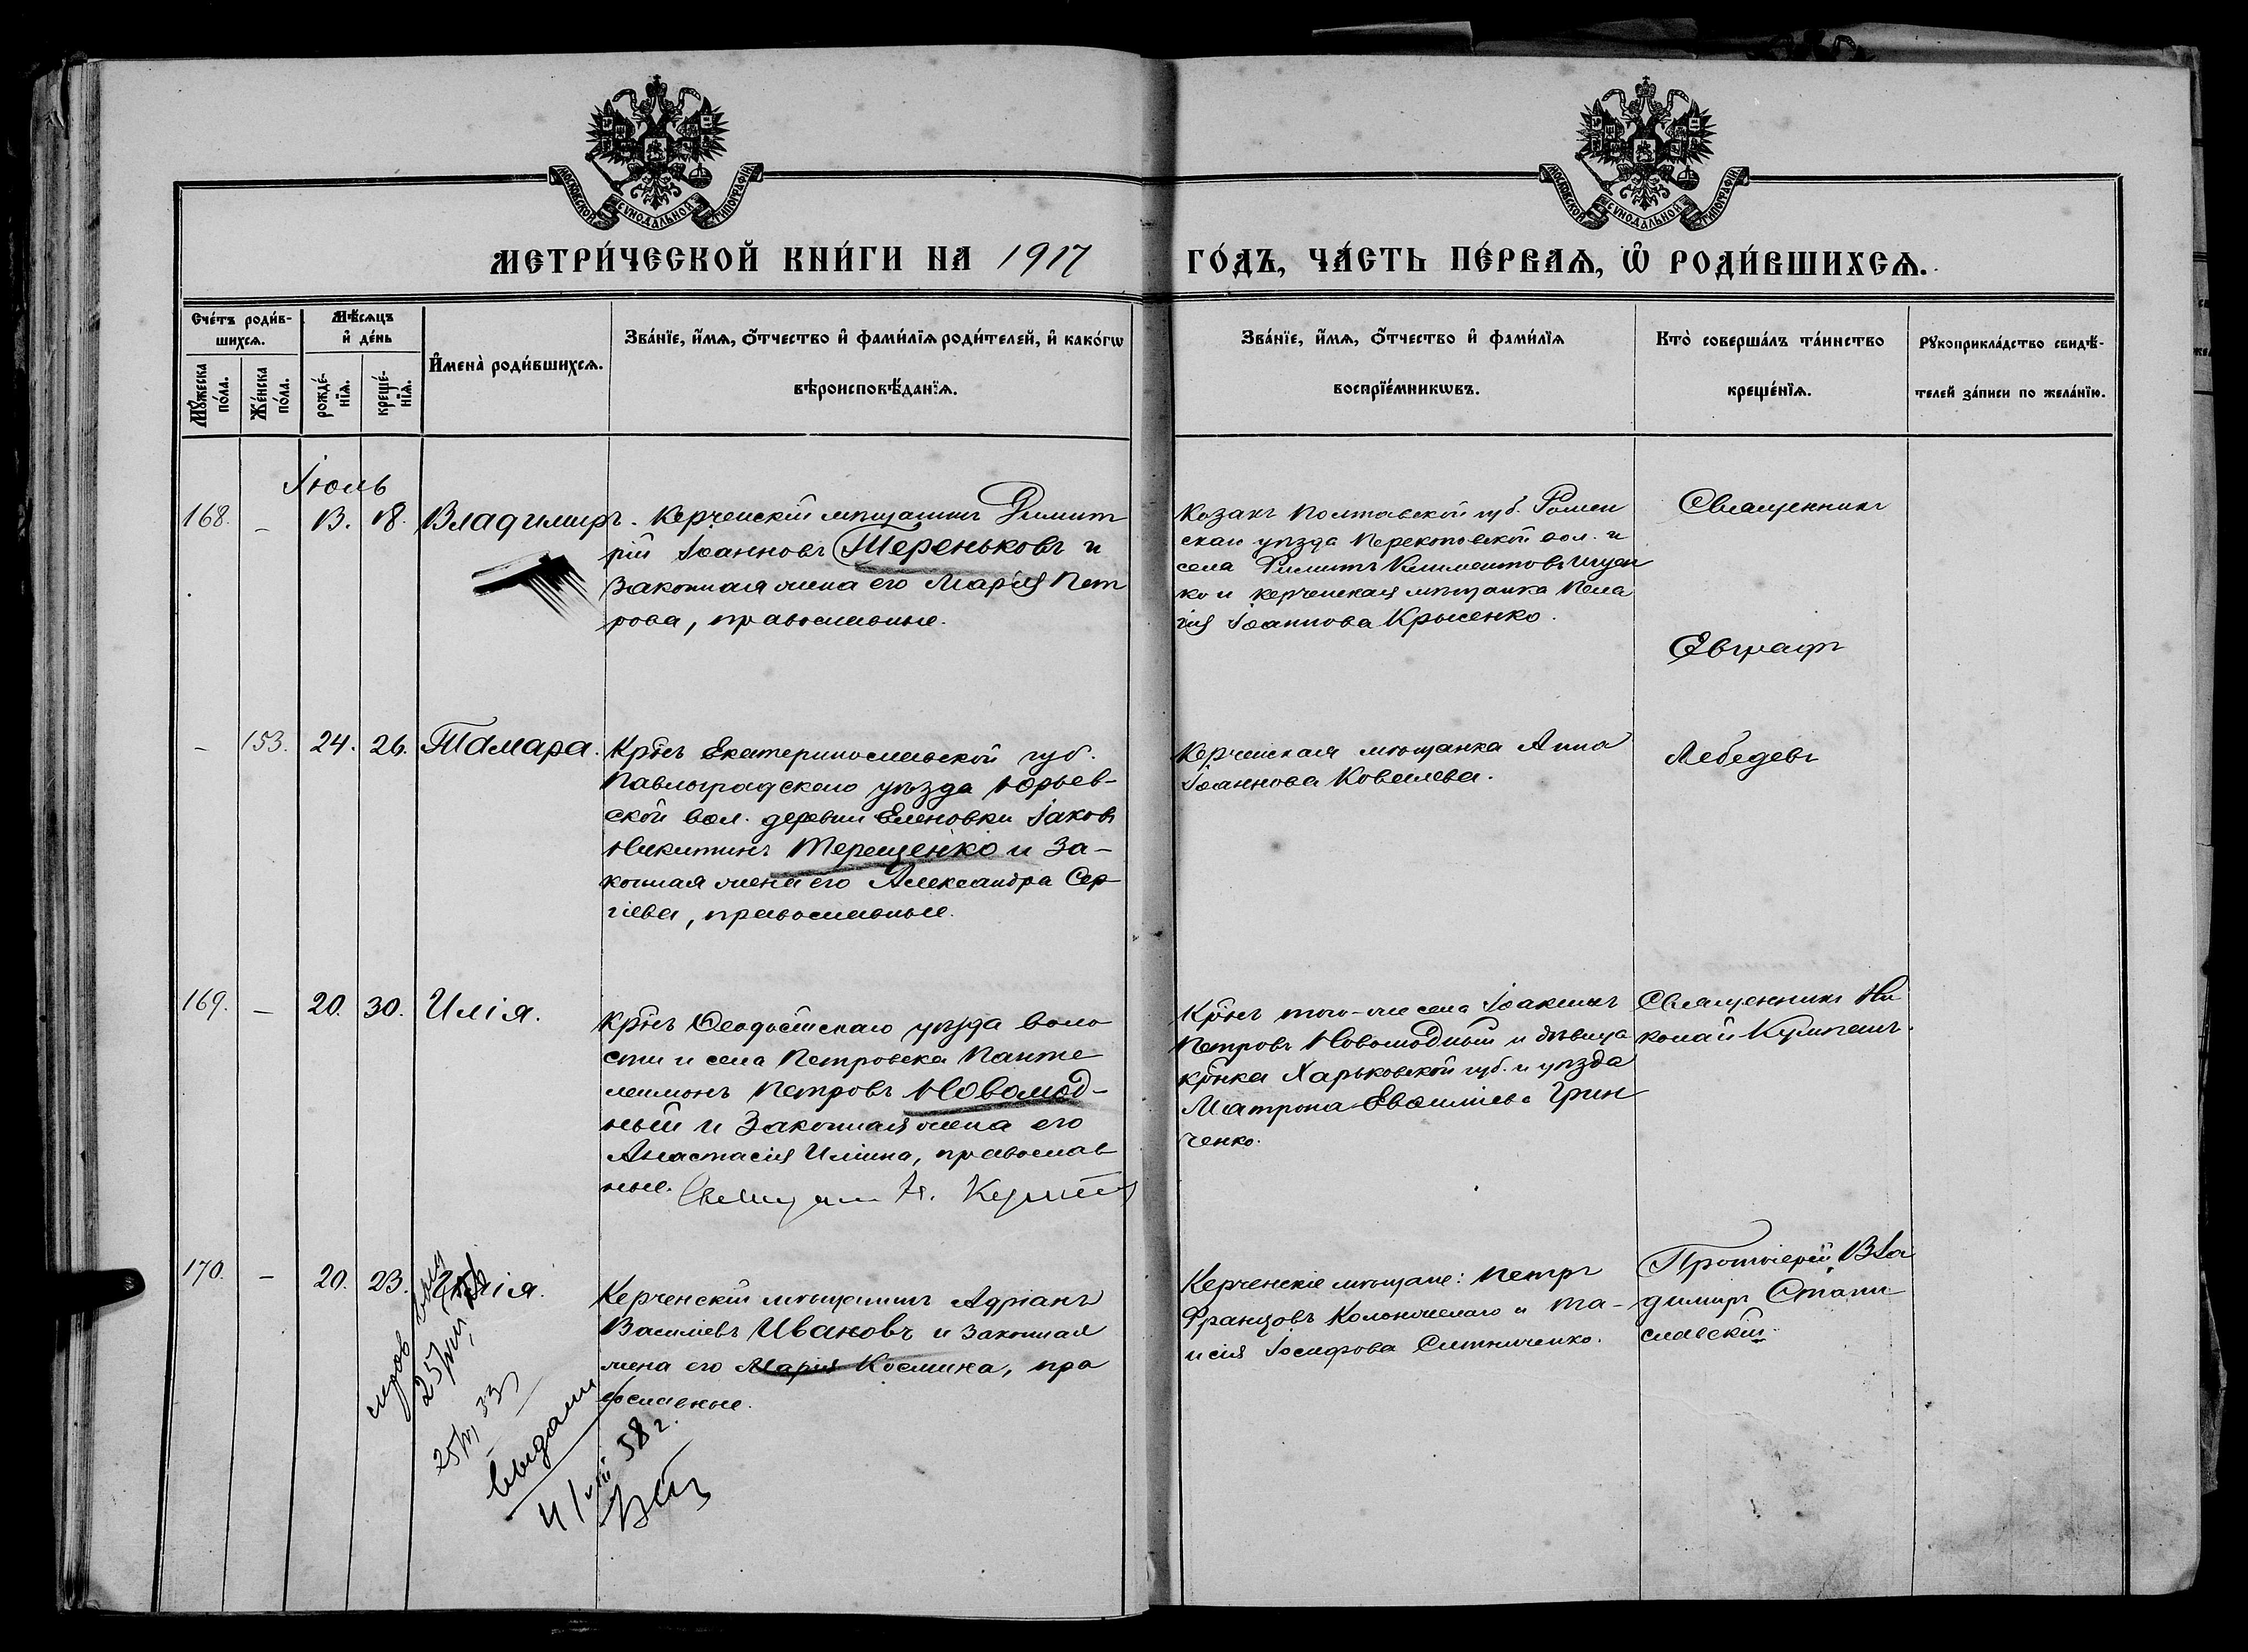 МОСКОВСКОЙ СУНОДАЛЬНОЙ ТИПОГРАФІИ
МОСКОВСКОЙ СУНОДАЛЬНОЙ ТИПОГРАФІИ
МЕТРИ́ЧЕСКОЙ КНИ́ГИ НА 1917
ГО́ДЪ, ЧА́СТЬ ПЕ́РВАѦ, Ѿ РОДИ́ВШИХСѦ.
Сче́тъ роди́в-
шихсѧ.
Му́жеска
по́ла.
Же́нска
по́ла.
Мѣ́сѧцъ
и҆ де́нь
рожде́-
нїѧ.
креще́-
нїѧ.
И҆мена̀ роди́вшихсѧ.
Зва́нїе, и҆́мѧ, ѻ҆́тчество и҆ фами́лїѧ роди́телей, и҆ како́гѡ
вѣроисповѣ́данїѧ.
Зва́нїе, и҆́мѧ, ѻ҆́тчество и҆ фами́лїѧ
воспрїе́мникѡвъ.
Кто̀ соверша́лъ та́инство
креще́нїѧ.
Рукоприкла́дство свидѣ́-
телей за́писи по жела́нїю.
Іюль
168. – 13. 18. Владимиръ.
Керченскій мѣщанинъ Димит
рій Іоанновъ Тереньковъ и
законная жена его Марія Пет
рова, православные.
Козакъ Полтавской губ. Ромен
скаи уѣзда вол. и
села
ко и керченская мѣщанка Пела
гія Іоаннова Крысенко.
Священникъ
Евграфъ
Лебедевъ
– 153. 24. 26. Тамара.
Кр̃нъ Екатеринославской губ.
Павлоградскаго уѣзда Юрьев-
ской вол. деревни Еленовки Іаковъ
Никитинъ Терещенко и за-
конная жена его Александра Сер
гіева, православные.
Керченская мѣщанка Анна
Іоаннова Ковалева.
169. – 20. 30. Илія.
Кр̃нъ Ѳеодосійскаго уѣзда воло
сти и села Петровска Панте
леимонъ Петровъ Новомод-
ный и законная жена его
Анастасія Иліина, православ
ные.
Кр̃нъ того-же села Іоакимъ
Петровъ Новомодный и дѣвица
кр̃нка Харьковской губ. и уѣзда
Матрона Евфиміева Грин
ченко.
Священникъ Ни
колай
170. – 20. 23. Илія.
Керченскій мѣщанинъ Адріанъ
Василіевъ Ивановъ и законная
жена его Марія Космина, пра
вославные.
Керченскіе мѣщане: Петръ
Францовъ и Та-
исія Іосифова Ситниченко.
Протоіерей Вла
димиръ Стани
славскій.
выдано
4/VIII 58 г.